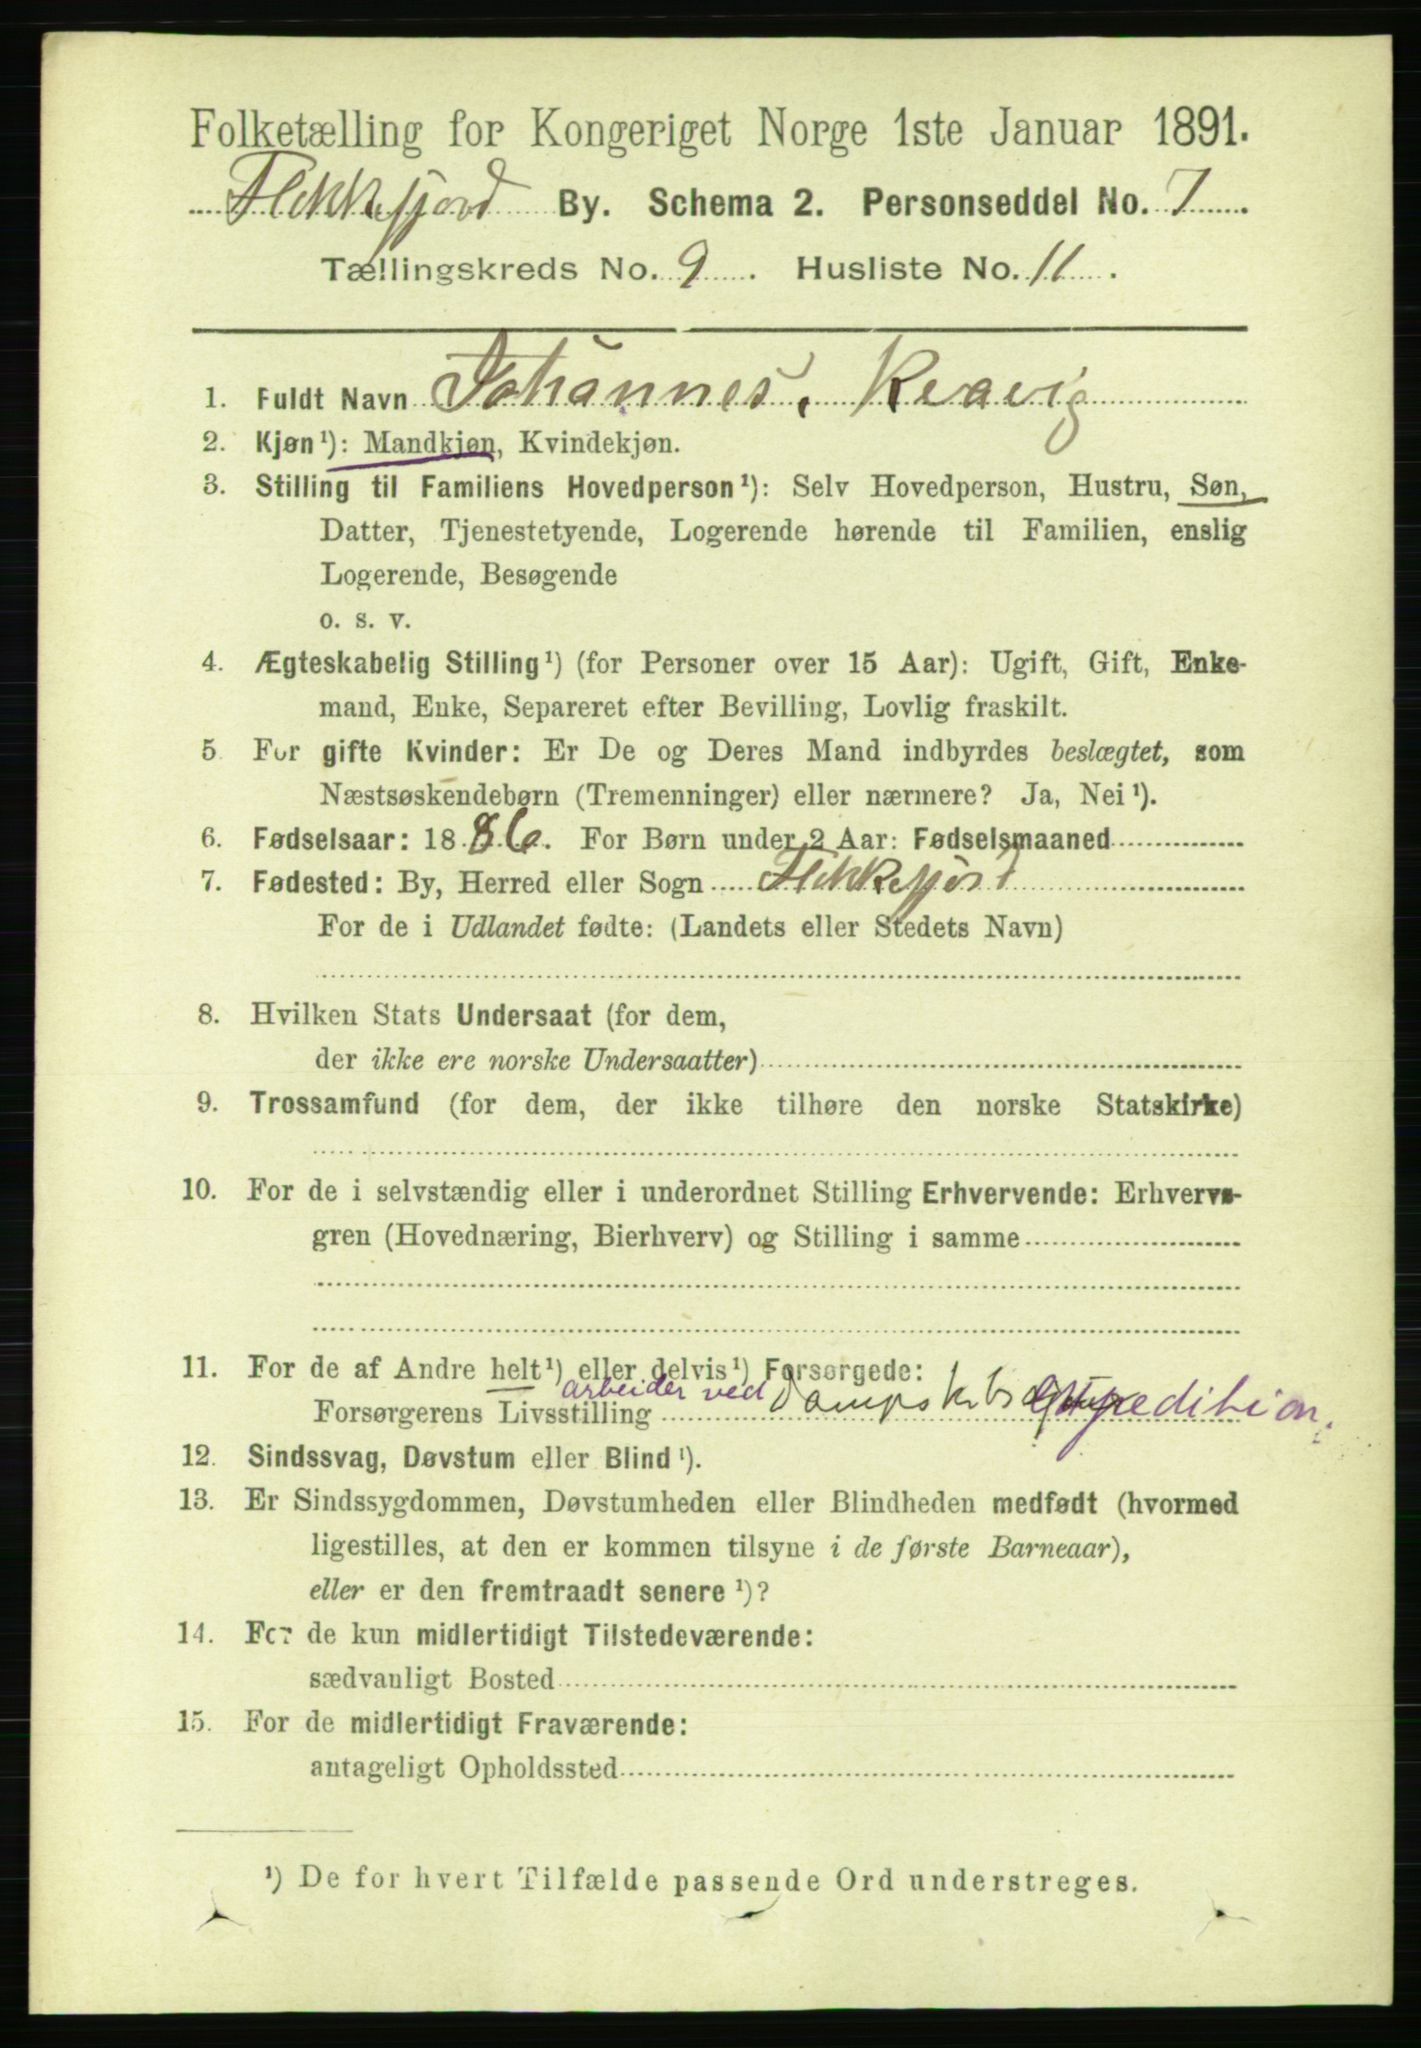 Folketælling for Kongeriget Norge 1ste Januar 1891.
Flekkefjord By. Schema 2. Personseddel No. 7.
Tællingskreds No. 9. Husliste No. 11.
1. Fuldt Navn Johannes, Kvavig
2. Kjøn¹): Mandkjøn, Kvindekjøn.
3. Stilling til Familiens Hovedperson¹): Selv Hovedperson, Hustru, Søn,
Datter, Tjenestetyende, Logerende hørende til Familien, enslig
Logerende, Besøgende
o. s. v.
4. Ægteskabelig Stilling¹) (for Personer over 15 Aar): Ugift, Gift, Enke-
mand, Enke, Separeret efter Bevilling, Lovlig fraskilt.
5. For gifte Kvinder: Er De og Deres Mand indbyrdes beslægtet, som
Næstsøskendebørn (Tremenninger) eller nærmere? Ja, Nei¹).
6. Fødselsaar: 1886. For Børn under 2 Aar: Fødselsmaaned
7. Fødested: By, Herred eller Sogn Flekkefjord
For de i Udlandet fødte: (Landets eller Stedets Navn)
8. Hvilken Stats Undersaat (for dem,
der ikke ere norske Undersaatter)
9. Trossamfund (for dem, der ikke tilhøre den norske Statskirke)
10. For de i selvstændig eller i underordnet Stilling Erhvervende: Erhvervs-
gren (Hovednæring, Bierhverv) og Stilling i samme
11. For de af Andre helt¹) eller delvis¹) Forsørgede:
arbeider ved
Forsørgerens Livsstilling Dampskibsexpedition.
12. Sindssvag, Døvstum eller Blind¹).
13. Er Sindssygdommen, Døvstumheden eller Blindheden medfødt (hvormed
ligestilles, at den er kommen tilsyne i de første Barneaar),
eller er den fremtraadt senere¹)?
14. For de kun midlertidigt Tilstedeværende:
sædvanligt Bosted
15. For de midlertidigt Fraværende:
antageligt Opholdssted
¹) De for hvert Tilfælde passende Ord understreges.